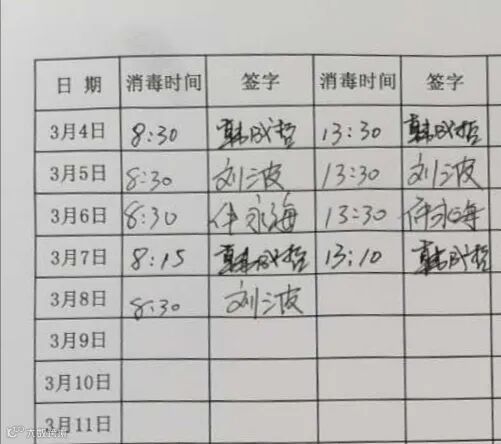 日 期 消毒时间 签字 消毒时间 签字
3月4日 8:30 韩成哲 13:30 韩成哲
3月5日 8:30 刘波 13:30 刘波
3月6日 8:30 永海 13:30 永海
3月7日 8:15 韩成哲 13:10 韩成哲
3月8日 8:30 刘波
3月9日
3月10日
3月11日